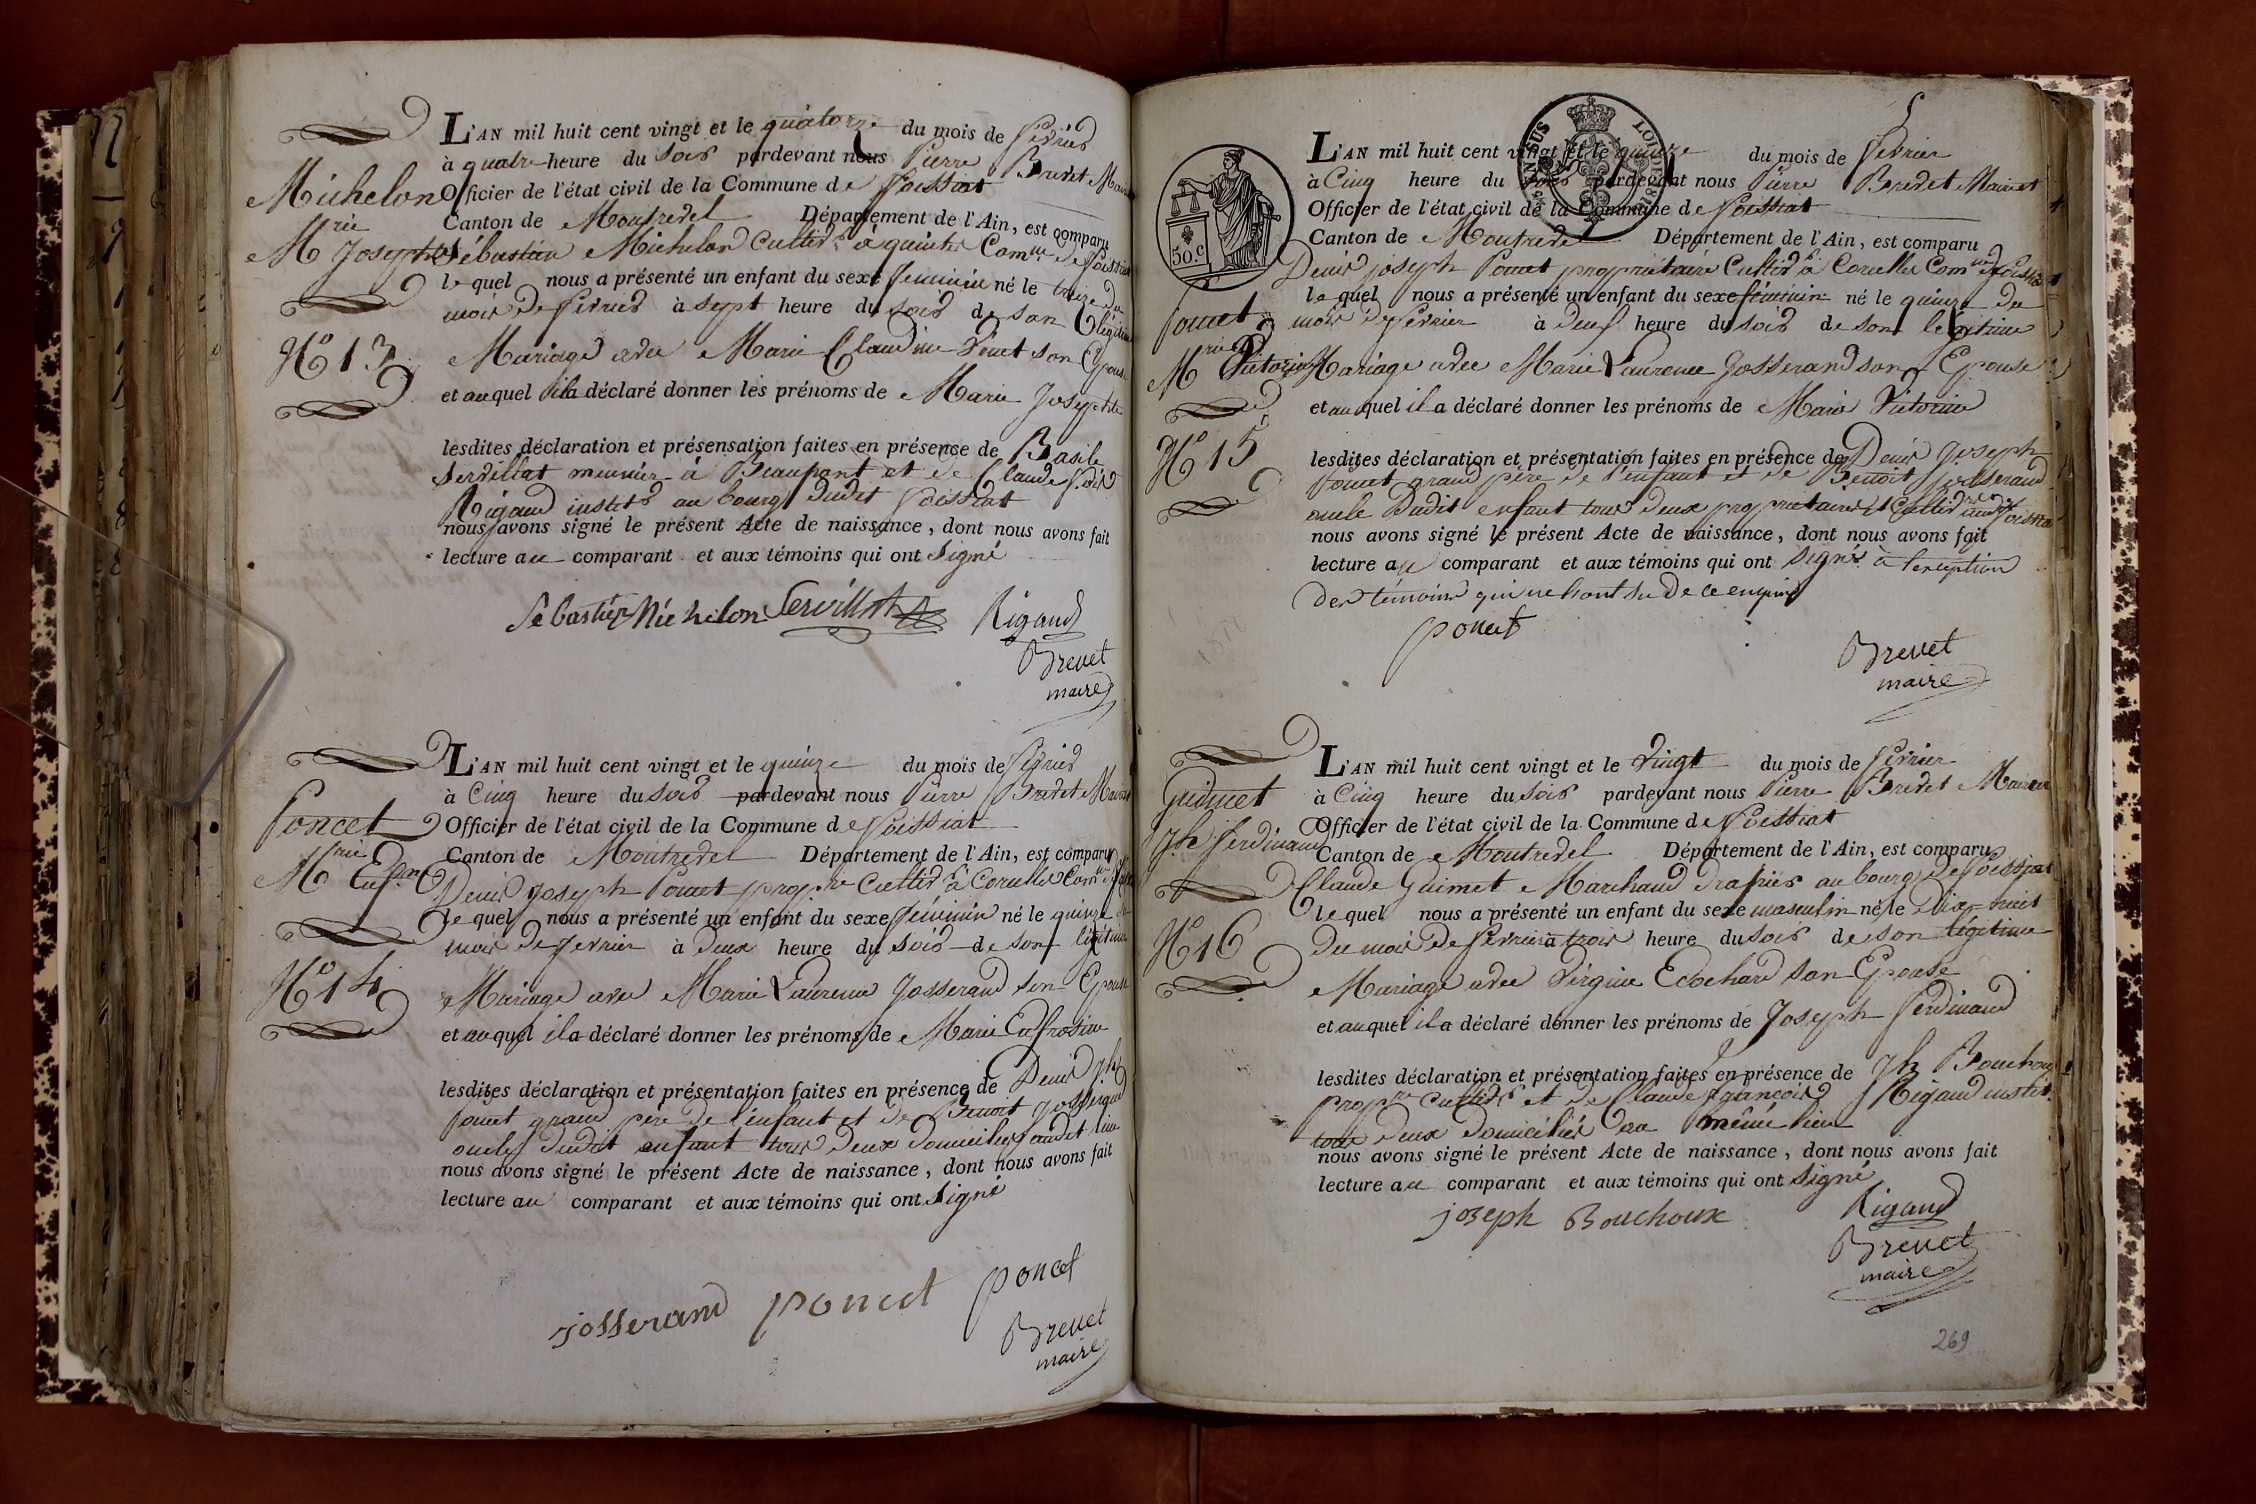 L'AN mil huit cent vingt et le quatorze du mois de février
à quatre heure du soir pardevant nous Pierre Brevet Maire
Michelon
Officier de l'état civil de la Commune de Poissiat
Canton de Montrevel Département de l'Ain, est comparu
Mrie Josephte
Sébastien Michelon Cultivr à Comne de Poissiat
lequel nous a présenté un enfant du sexe féminin né le treize du
mois de février à sept heure du soir de son légitime
No 13
Mariage avec Marie Claudine son Epouse
et auquel il a déclaré donner les prénoms de Marie Josephte
lesdites déclaration et présensation faites en présence de Basile
Servillat meunier à Beaupont et de Claude
Rigaud institr au bourg dudit Poissiat
nous avons signé le présent Acte de naissance, dont nous avons fait
lecture au comparant et aux témoins qui ont signé
Sebastien Michelon Servillat Rigaud
Brevet
maire
L'AN mil huit cent vingt et le quinze du mois de février
à Cinq heure du soir pardevant nous Pierre Brevet Maire
Poncet
Officier de l'état civil de la Commune de Poissiat
Canton de Montrevel Département de l'Ain, est comparu
Mrie
Denis Joseph Poncet proprre Cultivr à Corcelles Comne
lequel nous a présenté un enfant du sexe féminin né le quinze du
mois de février à deux heure du soir de son légitime
No 14
Mariage avec Marie Laurence Josserand son Epouse
et auquel il a déclaré donner les prénoms de Marie Eufrosine
lesdites déclaration et présentation faites en présence de Denis Jh
Poncet grand père de l'enfant et de Benoit Josserand
oncle dudit enfant tous deux domiciliés audit lieu
nous avons signé le présent Acte de naissance, dont nous avons fait
lecture au comparant et aux témoins qui ont signé
josserand poncet poncet
Brevet
maire
50.C
L'AN mil huit cent vingt et le quinze du mois de février
à Cinq heure du soir pardevant nous Pierre Brevet Maire
Officier de l'état civil de la Commune de Poissiat
Canton de Montrevel Département de l'Ain, est comparu
Denis joseph Poncet propriétaire Cultivr à Corcelles Comne de Poissiat
lequel nous a présenté un enfant du sexe féminin né le quinze du
Poncet
mois de février à deux heure du soir de son légitime
Mrie Victorine
Mariage avec Marie Laurence Josserand son Epouse
et auquel il a déclaré donner les prénoms de Marie Victorine
No 15
lesdites déclaration et présentation faites en présence de Denis Joseph
Poncet grand père de l'enfant et de Benoit Josserand
oncle dudit enfant tous deux propriétaires et Cultivr
nous avons signé le présent Acte de naissance, dont nous avons fait
lecture au comparant et aux témoins qui ont signé à l'exception
des témoins qui ne l'ont su de ce enquis
poncet
Brevet
maire
L'AN mil huit cent vingt et le vingt du mois de février
à Cinq heure du soir pardevant nous Pierre Brevet Maire
Guimet
Officier de l'état civil de la Commune de Poissiat
Jh ferdinand
Canton de Montrevel Département de l'Ain, est comparu
Claude Guimet Marchand drapier au bourg de Poissiat
lequel nous a présenté un enfant du sexe masculin né le dix-huit
No 16
du mois de février à trois heure du soir de son légitime
Mariage avec Virginie Ecochard son Epouse
et auquel il a déclaré donner les prénoms de Joseph ferdinand
lesdites déclaration et présentation faites en présence de Jh Bouchoux
proprre cultivr et de Claude françois Rigaud instit.
tous deux domiciliés au même lieu
nous avons signé le présent Acte de naissance, dont nous avons fait
lecture au comparant et aux témoins qui ont signé
joseph Bouchoux Rigaud
Brevet
maire
269